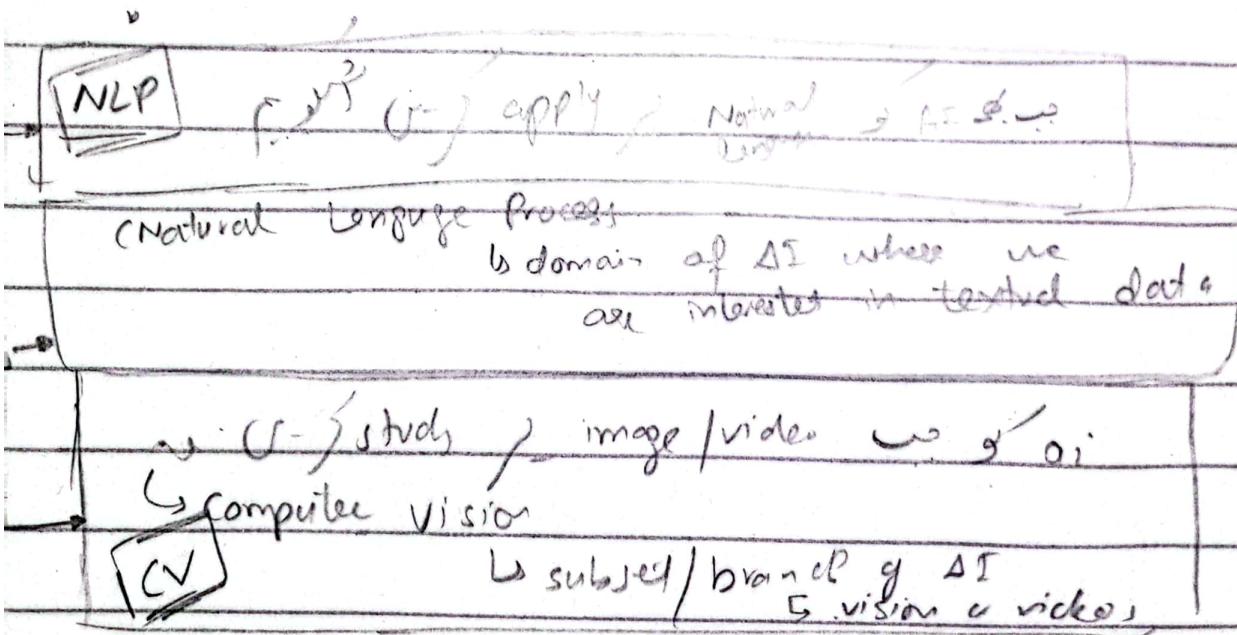 NLP
جب AI کو Natural Language پر apply کرتے ہیں تو
(Natural Lenguge Process
↳ domain of AI where we
are interested in textual data
ai کو جب image/video پر study کرتے ہیں
↳ Computer vision
CV
↳ subset/branch of AI
↳ vision videos